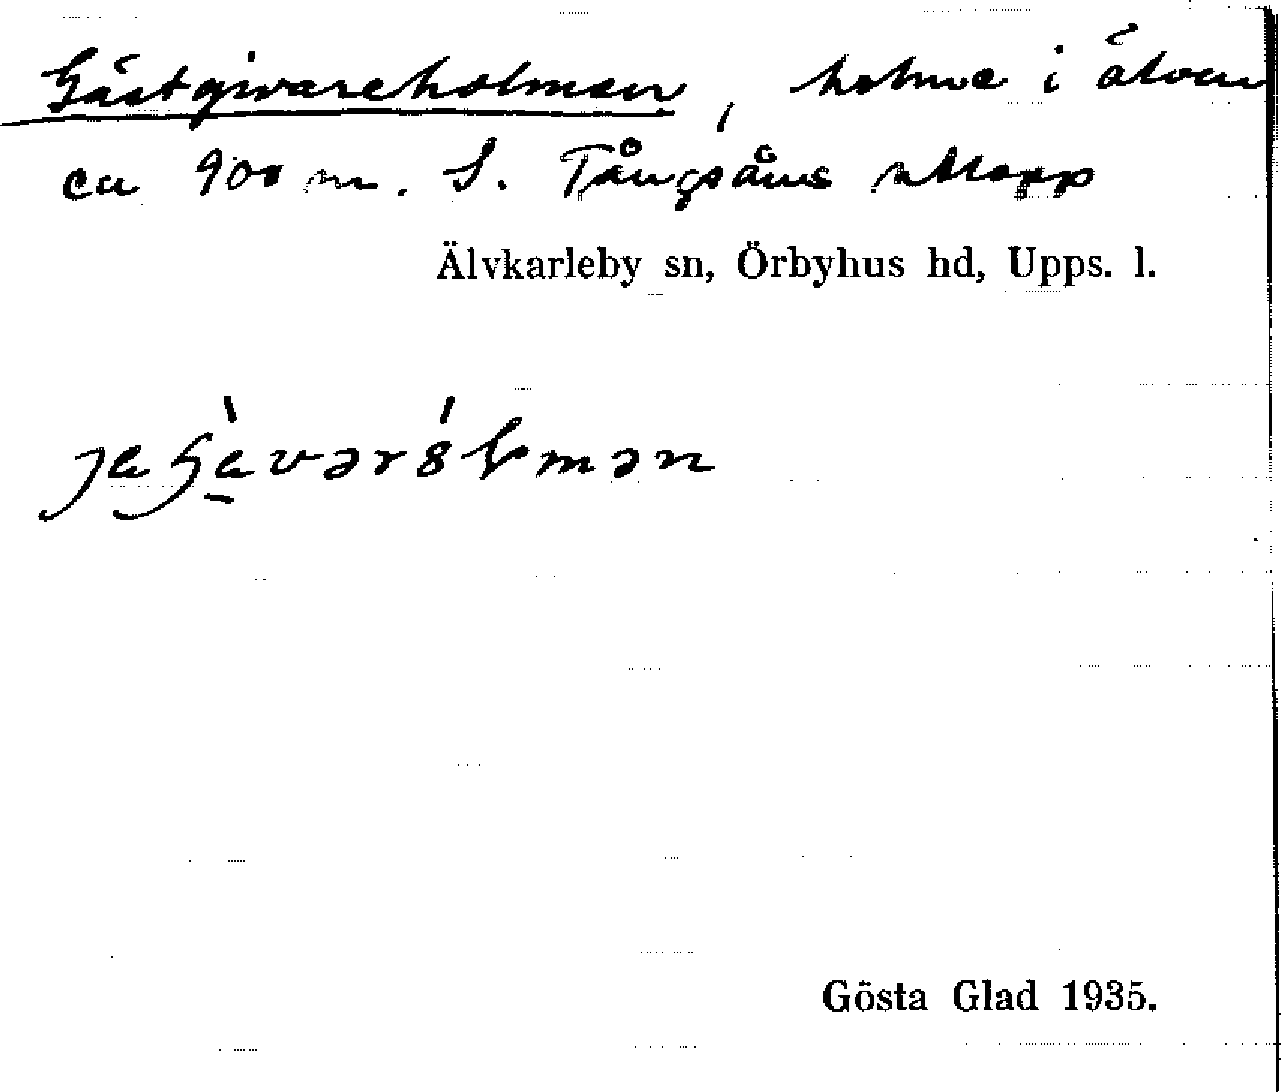 Gästgivareholmen, holme i älven
ca 900 m. S. Tångsåns utlopp
Älvkarleby sn, Örbyhus hd, Upps. l.
Gösta Glad 1935.